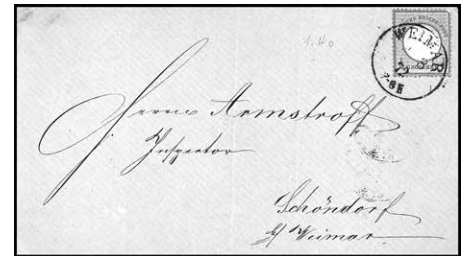 1.40
WEIMAR
8
72
7-8 N
Herrn Armstroff
Inspector
Schöndorf
b/ Weimar